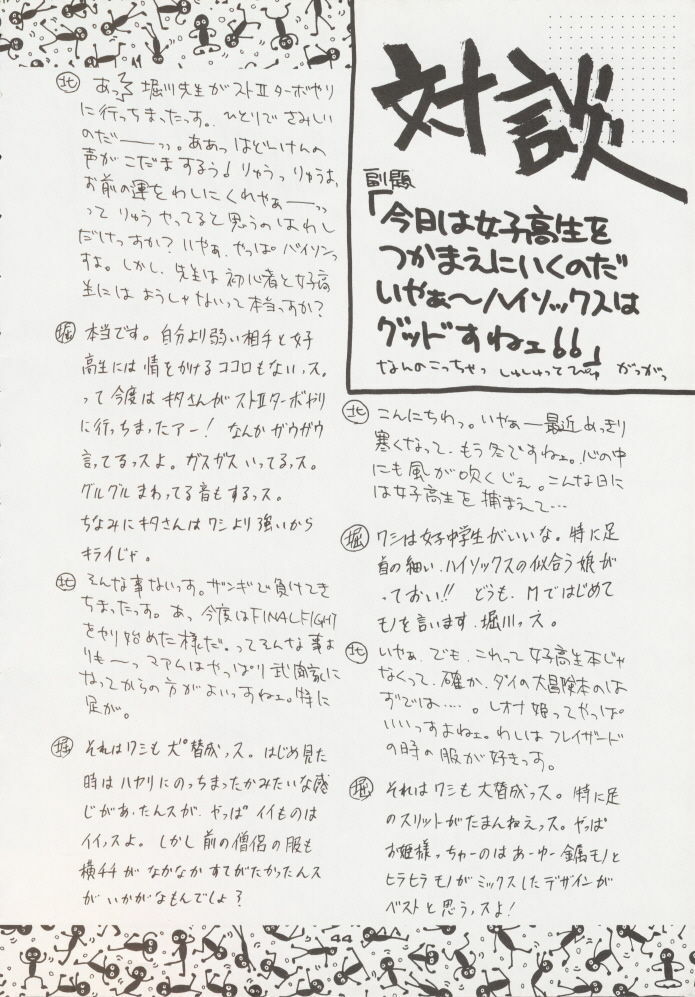 対談
副題
「今日は女子高生を
つかまえにいくのだ
いやぁ〜ハイソックスは
グッドすねェ66」
なんのこっちゃっ しゅしゅってぴゅ がっがっ
北 こんにちわっ。いやぁー最近めっきり
寒くなって、もう冬ですねェ。心の中
にも風が吹くじぇ。こんな日に
は女子高生を捕まえて…
堀 ワシは女子中学生がいいな。特に足
首の細い、ハイソックスの似合う娘が
っておい!! どうも、Mではじめて
モノを言います、堀川っス。
北 いやぁ、でも、これって女子高生本じゃ
なくって、確か、ダイの大冒険本のは
ずでは….。レオナ姫ってやっぱ
いいっすよねェ。わしはフレイザード
の時の服が好きっす。
堀 それはワシも大賛成っス。特に足
のスリットがたまんねえっス。やっぱ
お姫様っちゅーのはあーゆー金属モノと
ヒラヒラモノがミックスしたデザインが
ベストと思うっスよ!
北 あっ 堀川先生がストⅡターボやり
に行っちまったっす。ひとりでさみしい
のだ――ッ。ああっはどいけんの
声がこだまするぅ! りゅうっりゅうよ
お前の運をわしにくれやぁ――ッ
って りゅうやってると思うのはわし
だけっすか? いやぁ、やっぱ バイソンっ
すよ。しかし、先生は初心者と女子高
生には ようしゃないって本当っすか?
堀 本当です。自分より弱い相手と女子
高生には情をかけるココロもないっス。
って今度はキタさんがストⅡターボやり
に行っちまったアー! なんかガウガウ
言ってるっスよ。ガスガスいってるっス。
グルグルまわってる音もするっス。
ちなみにキタさんはワシより強いから
キライじゃ。
北 そんな事ないっす。ザンギで負けてき
ちまったっす。あっ 今度はFINALFIGHT
をやり始めた様だ。ってそんな事よ
りも〜っ マァムはやっぱり武闘家に
なってからの方がよいっすねェ。特に
足が。
堀 それはワシも大賛成っス。はじめ見た
時はハヤリにのっちまったかみたいな感
じがあったんスが、やっぱイイものは
イイっスよ。しかし前の僧侶の服も
横チチがなかなかすてがたかったんス
がいかがなもんでしょ?
44